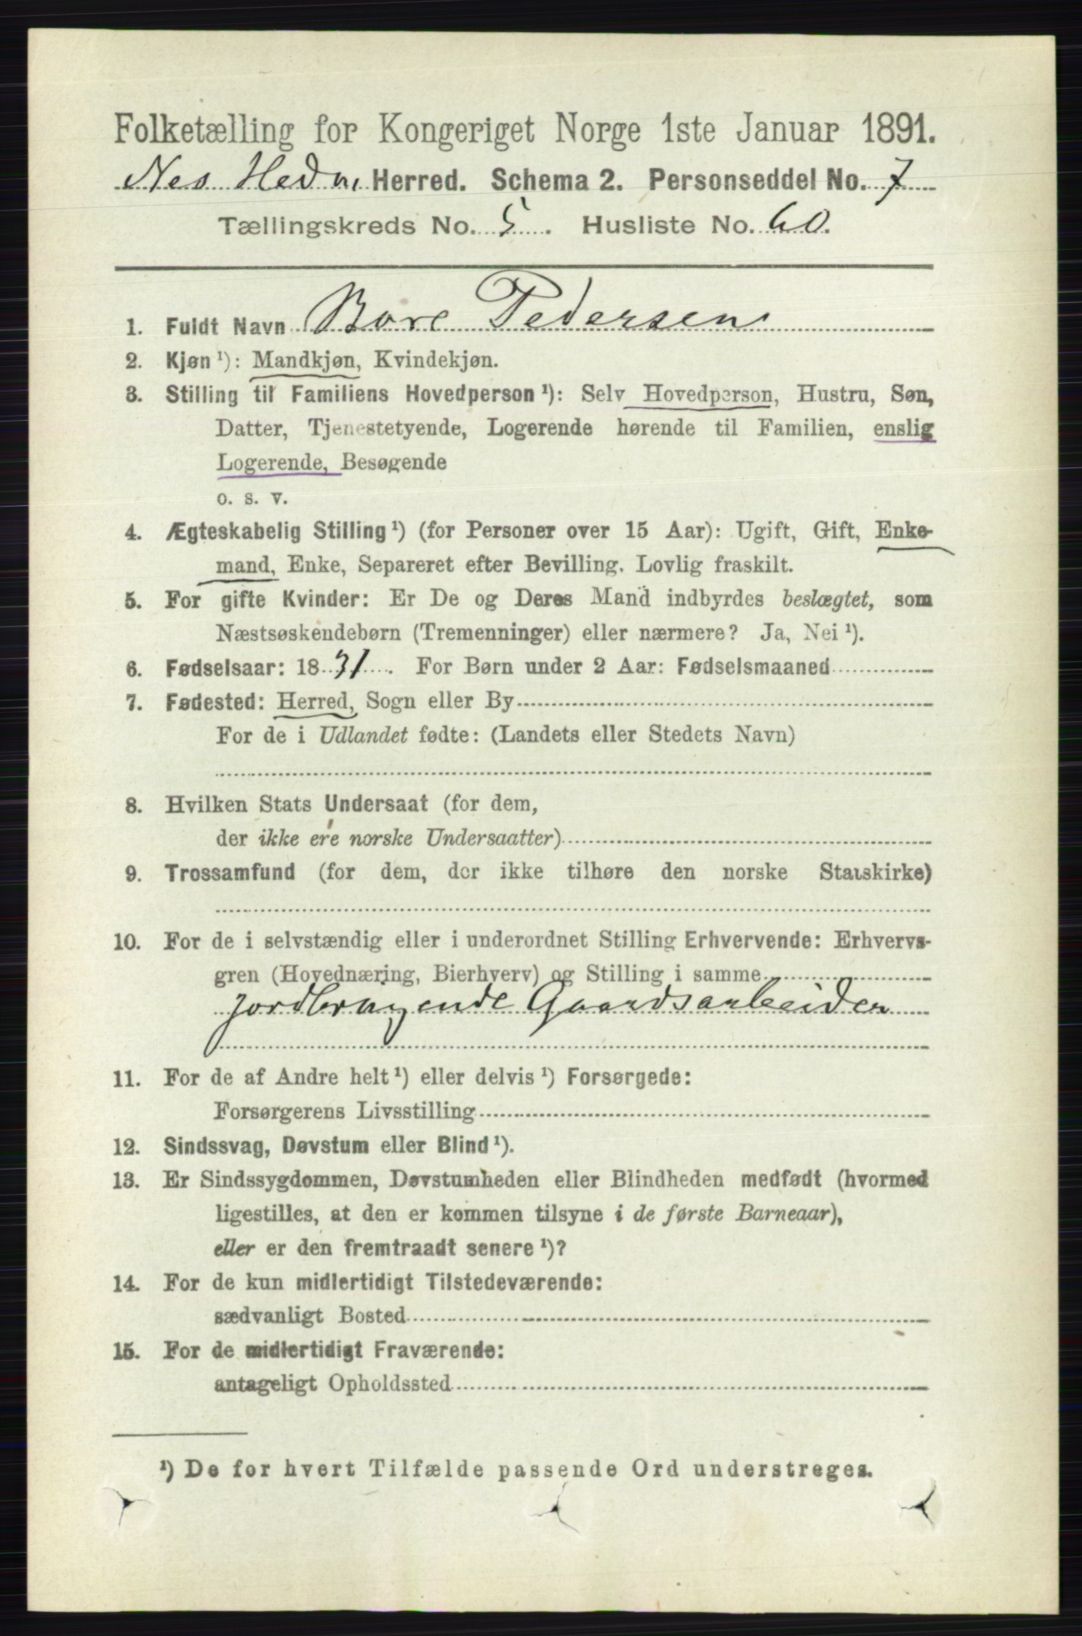 Folketælling for Kongeriget Norge 1ste Januar 1891.
Nes Hedm. Herred. Schema 2. Personseddel No. 7
Tællingskreds No. 5. Husliste No. 60.
1. Fuldt Navn Bore Pedersen
2. Kjøn ¹): Mandkjøn, Kvindekjøn.
3. Stilling til Familiens Hovedperson ¹): Selv Hovedperson, Hustru, Søn,
Datter, Tjenestetyende, Logerende hørende til Familien, enslig
Logerende, Besøgende
o. s. v.
4. Ægteskabelig Stilling ¹) (for Personer over 15 Aar): Ugift, Gift, Enke-
mand, Enke, Separeret efter Bevilling. Lovlig fraskilt.
5. For gifte Kvinder: Er De og Deres Mand indbyrdes beslægtet, som
Næstsøskendebørn (Tremenninger) eller nærmere? Ja, Nei ¹).
6. Fødselsaar: 1831. For Børn under 2 Aar: Fødselsmaaned
7. Fødested: Herred, Sogn eller By
For de i Udlandet fødte: (Landets eller Stedets Navn)
8. Hvilken Stats Undersaat (for dem,
der ikke ere norske Undersaatter)
9. Trossamfund (for dem, der ikke tilhøre den norske Statskirke)
10. For de i selvstændig eller i underordnet Stilling Erhvervende: Erhvervs-
gren (Hovednæring, Bierhverv) og Stilling i samme
jordbrugende Gaardsarbeider
11. For de af Andre helt ¹) eller delvis ¹) Forsørgede:
Forsørgerens Livsstilling
12. Sindssvag, Døvstum eller Blind ¹).
13. Er Sindssygdommen, Døvstumheden eller Blindheden medfødt (hvormed
ligestilles, at den er kommen tilsyne i de første Barneaar),
eller er den fremtraadt senere ¹)?
14. For de kun midlertidigt Tilstedeværende:
sædvanligt Bosted
15. For de midlertidigt Fraværende:
antageligt Opholdssted
¹) De for hvert Tilfælde passende Ord understreges.